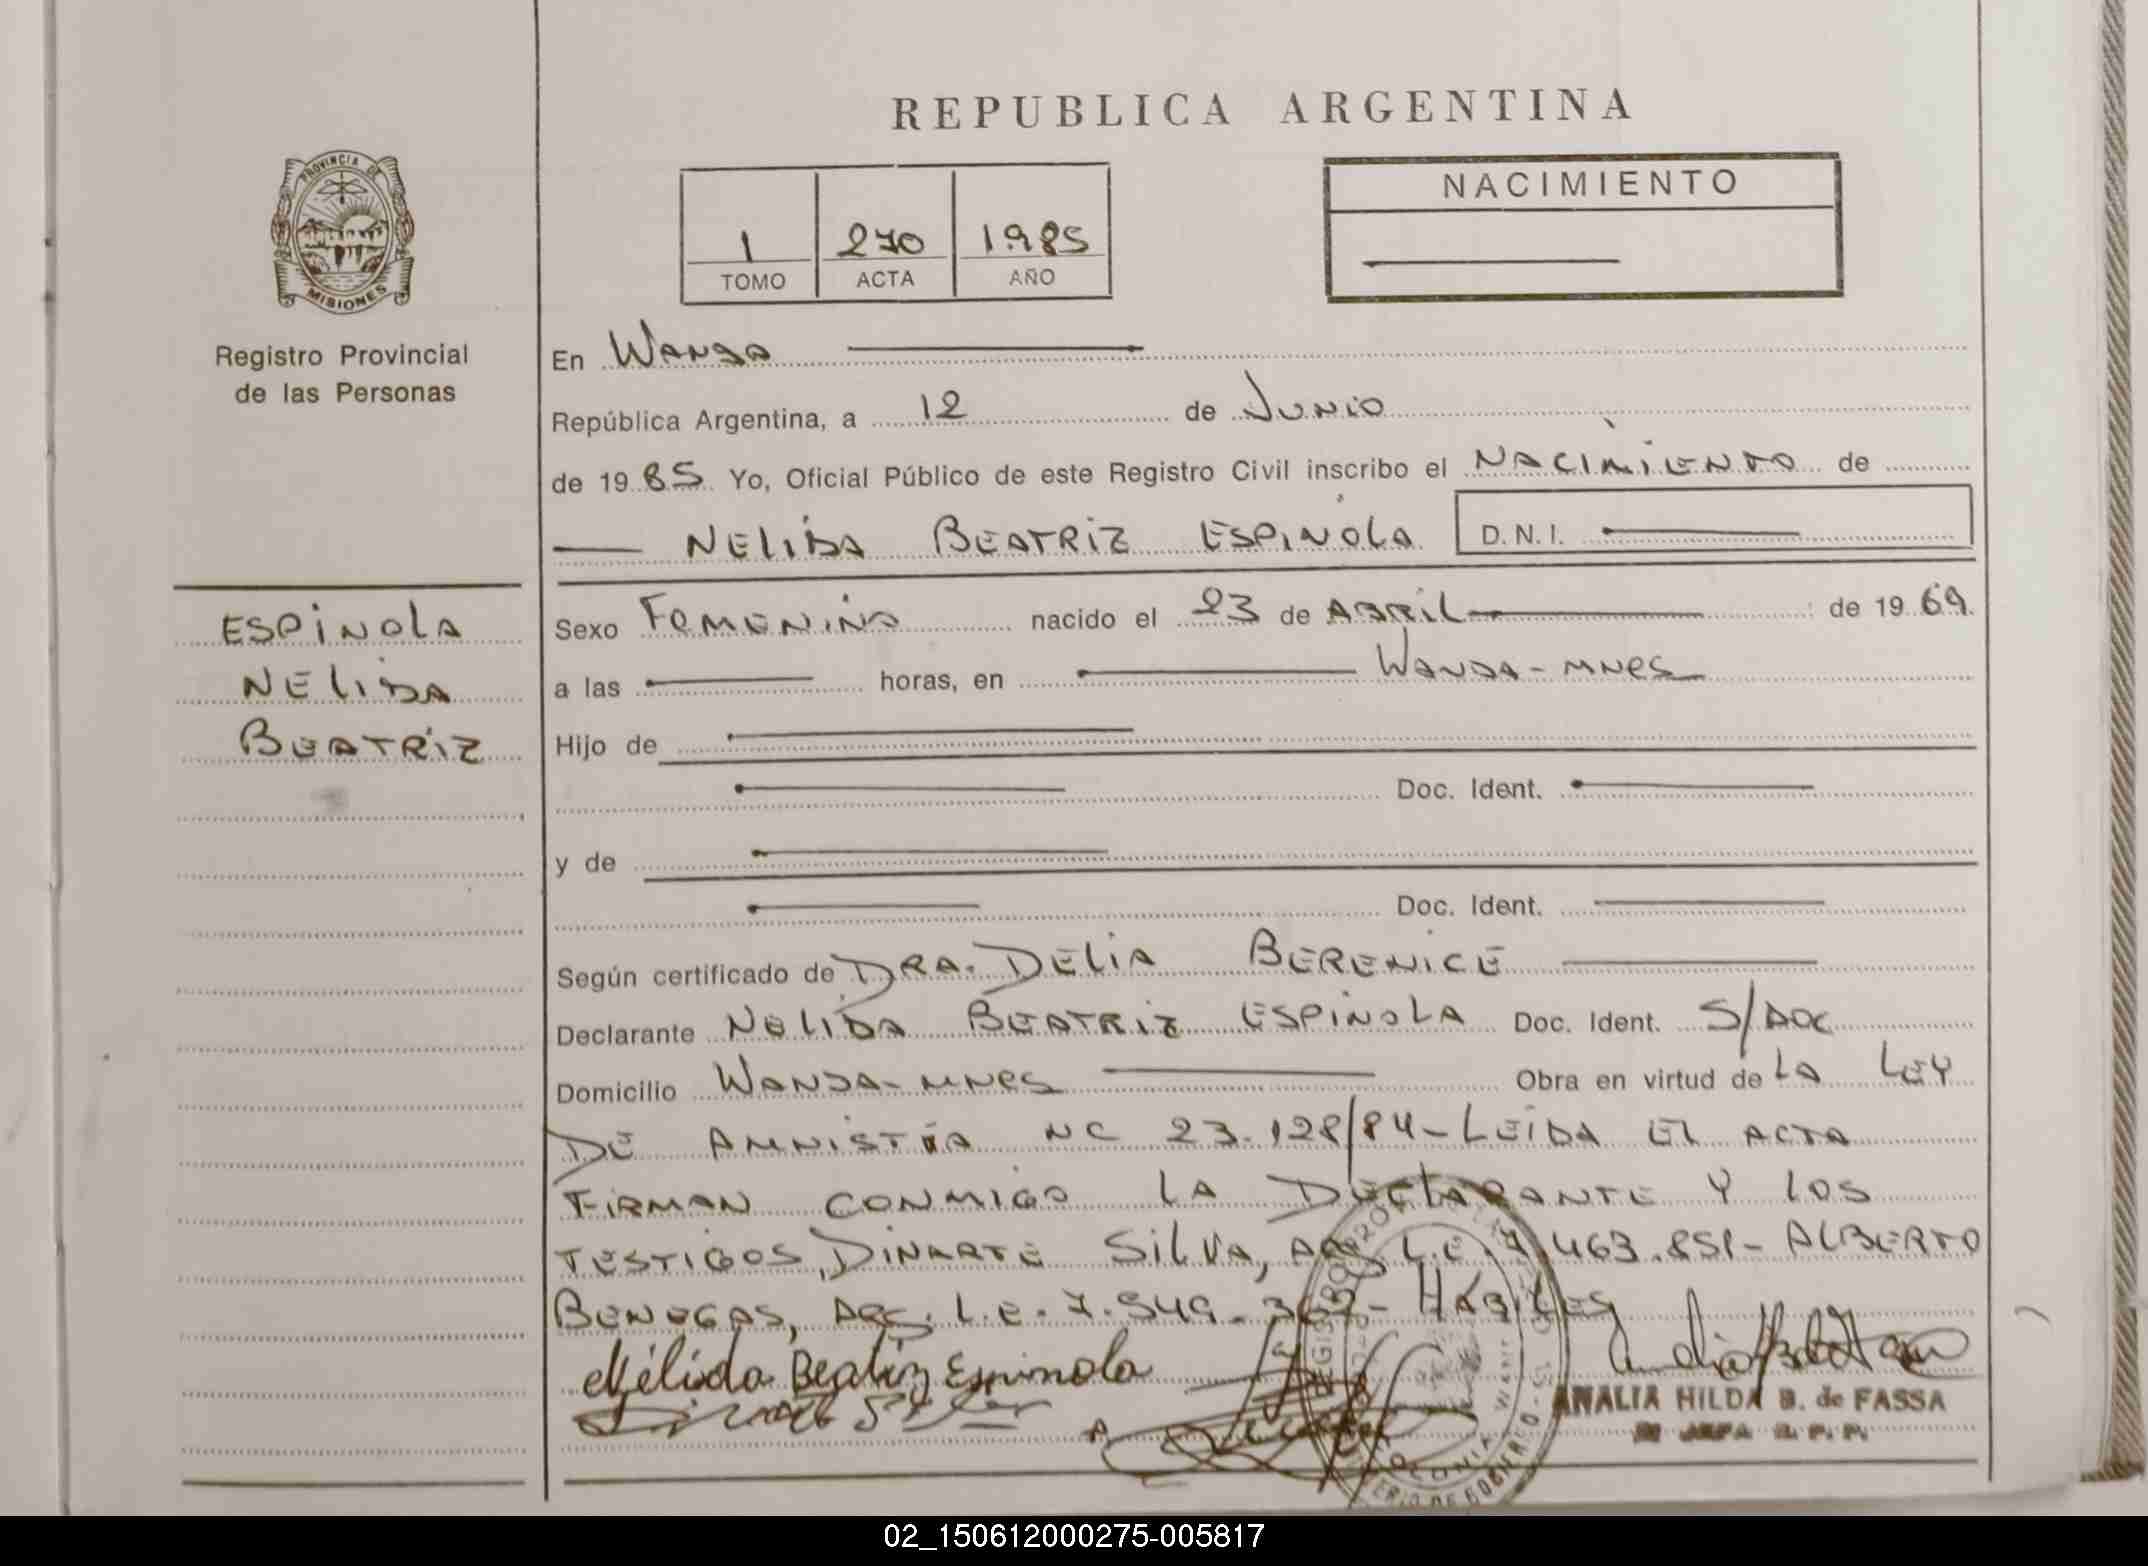 REPUBLICA ARGENTINA
PROVINCIA DE
MISIONES
Registro Provincial
de las Personas
1 270 1985
TOMO ACTA AÑO
NACIMIENTO
En Wanda
República Argentina, a 12 de Junio
de 1985 Yo, Oficial Público de este Registro Civil inscribo el NACIMIENTO de
NELIDA BEATRIZ ESPINOLA D.N.I.
ESPINOLA
NELIDA
BEATRIZ
Sexo FEMENINO nacido el 23 de ABRIL de 1969.
a las horas, en WANDA-MNES
Hijo de
Doc. Ident.
y de
Doc. Ident.
Según certificado de DRA. DELIA BERENICE
Declarante NELIDA BEATRIZ ESPINOLA Doc. Ident. S/DOC
Domicilio WANDA-MNES Obra en virtud de LA LEY
DE AMNISTIA NC 23.128/84-LEIDA EL ACTA
FIRMAN CONMIGO LA DECLARANTE Y LOS
TESTIGOS, DINARTE SILVA, L.E. 7.463.851- ALBERTO
BENEGAS, ARG. L.E. 7.549. HABILES
Nélida Beatriz Espinola
ANALIA HILDA B. de FASSA
JEFA R. P. P.
02_150612000275-005817